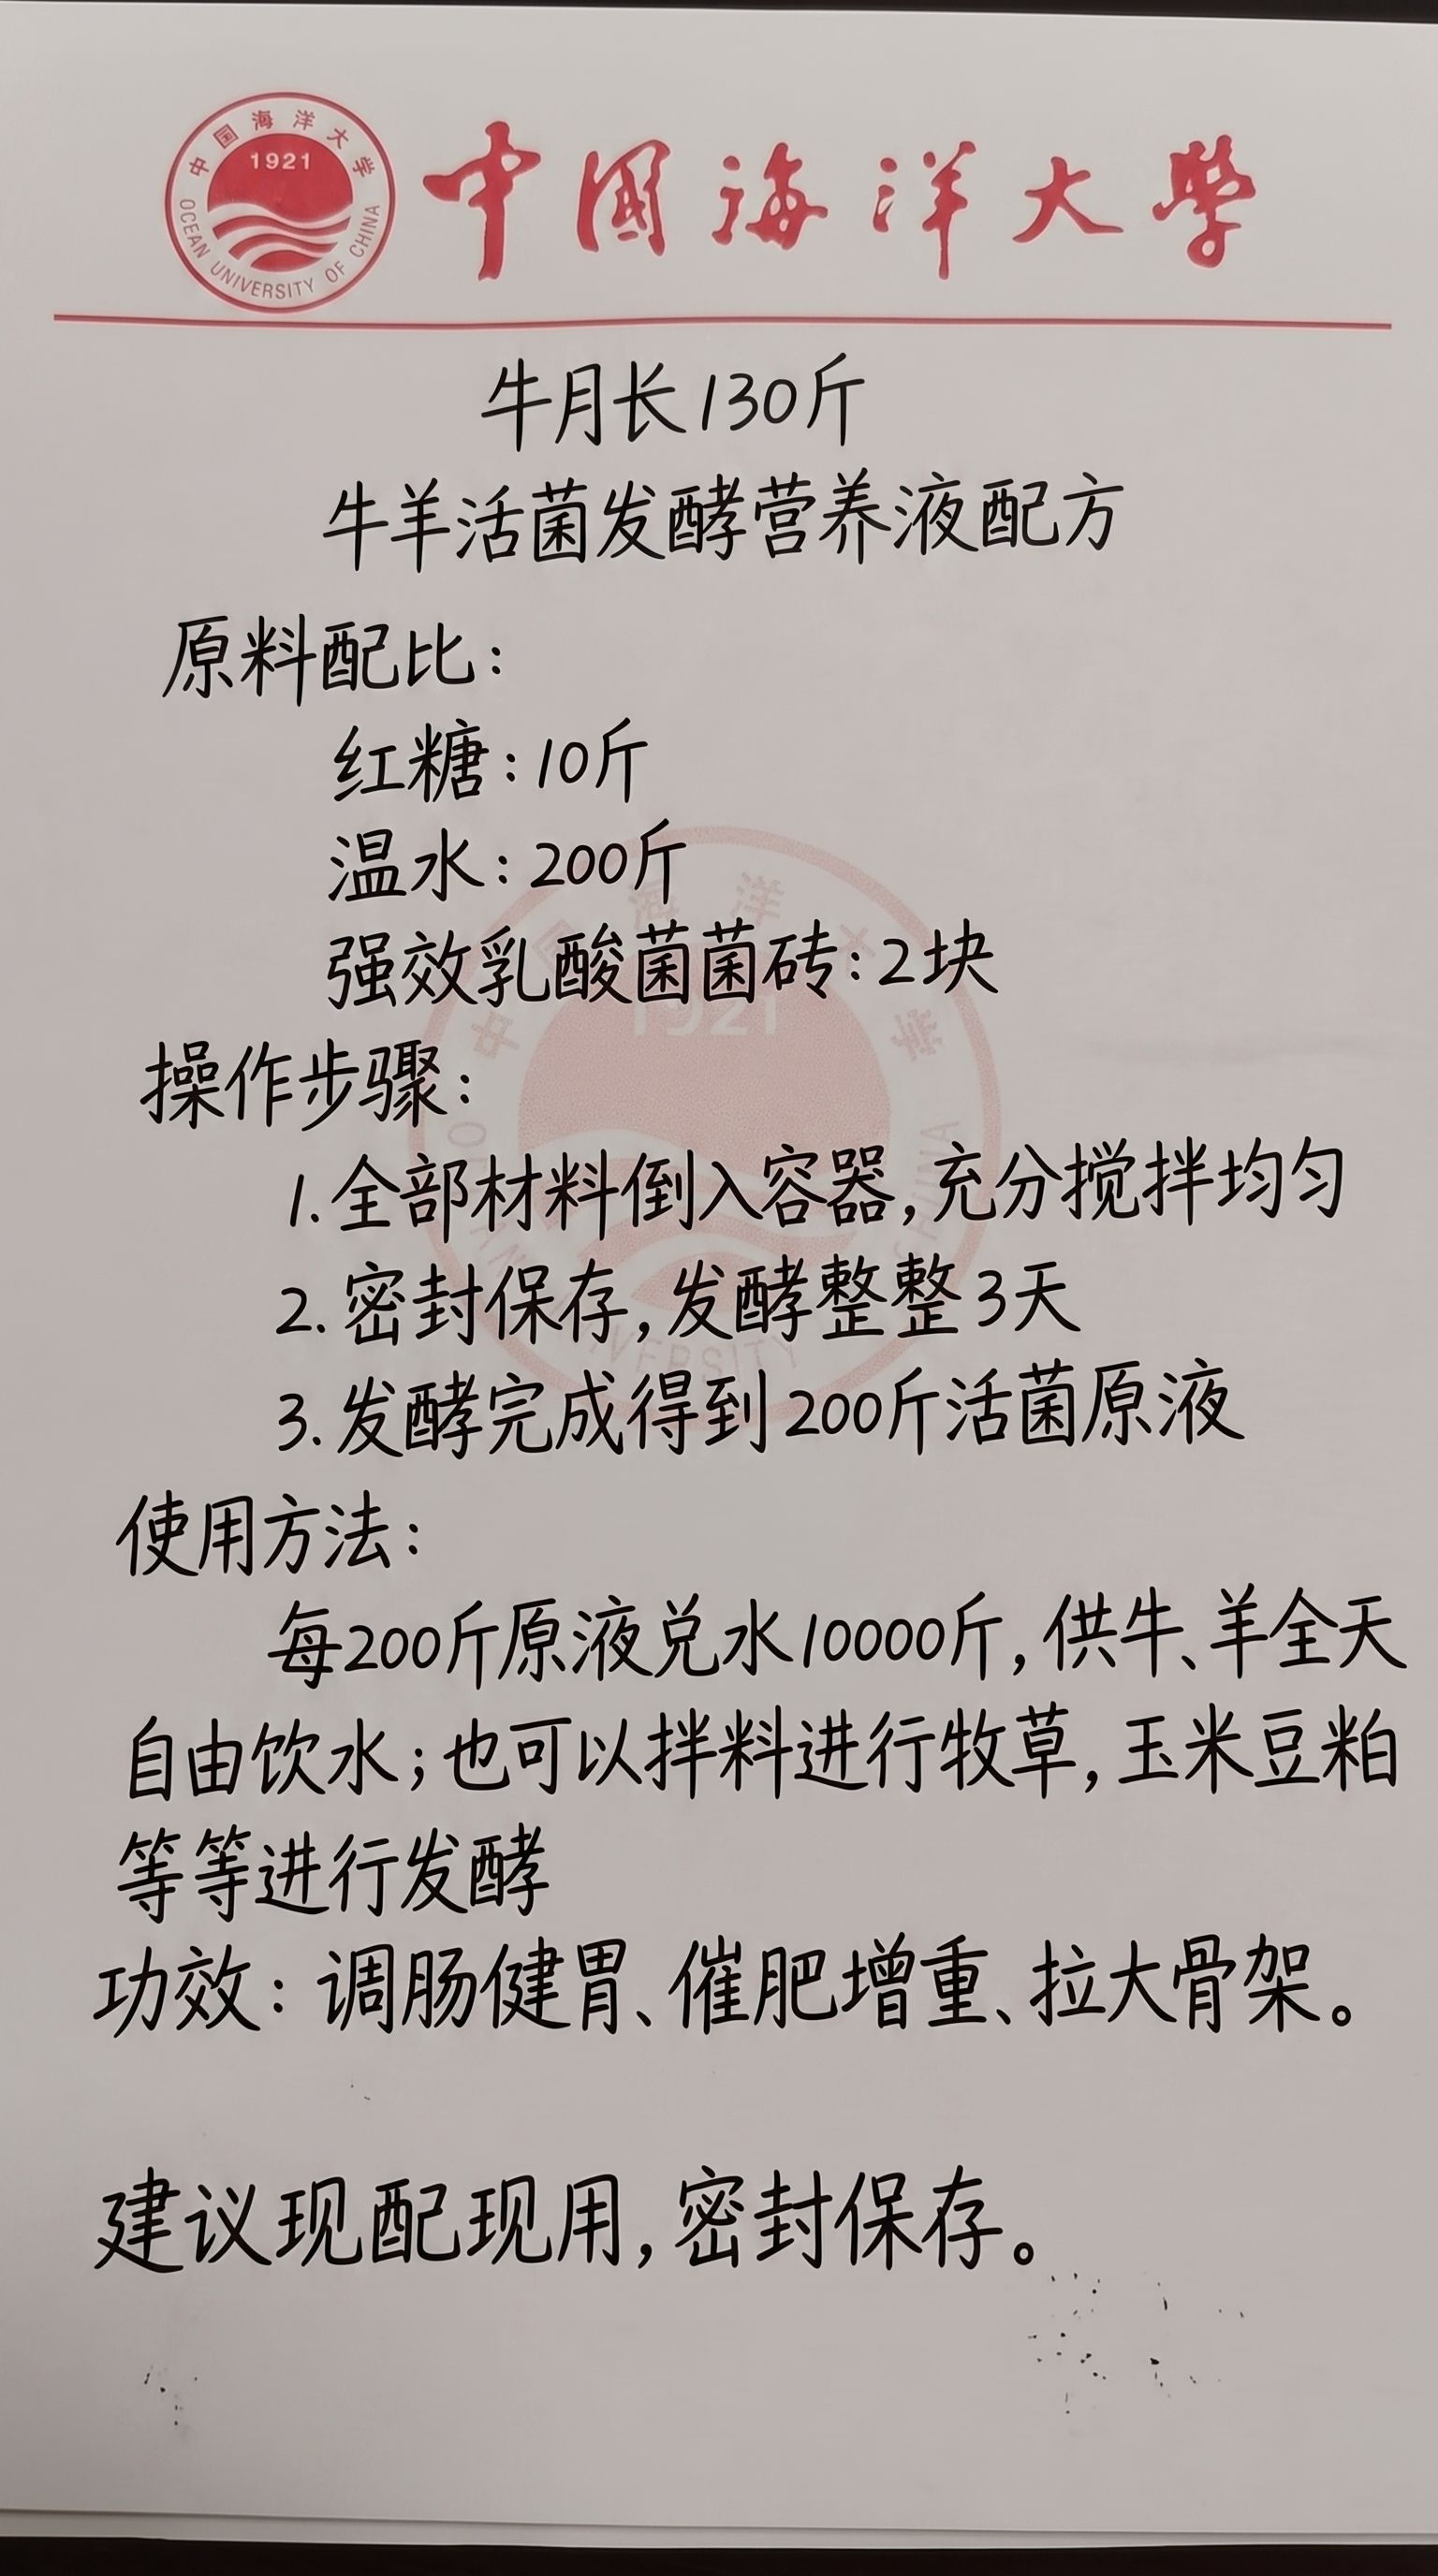 中国海洋大学
1921
OCEAN UNIVERSITY OF CHINA
中國海洋大學
牛月长130斤
牛羊活菌发酵营养液配方
原料配比：
红糖：10斤
温水：200斤
强效乳酸菌菌砖：2块
操作步骤：
1.全部材料倒入容器，充分搅拌均匀
2.密封保存，发酵整整3天
3.发酵完成得到200斤活菌原液
使用方法：
每200斤原液兑水10000斤，供牛、羊全天
自由饮水；也可以拌料进行牧草，玉米豆粕
等等进行发酵
功效：调肠健胃、催肥增重、拉大骨架。
建议现配现用，密封保存。